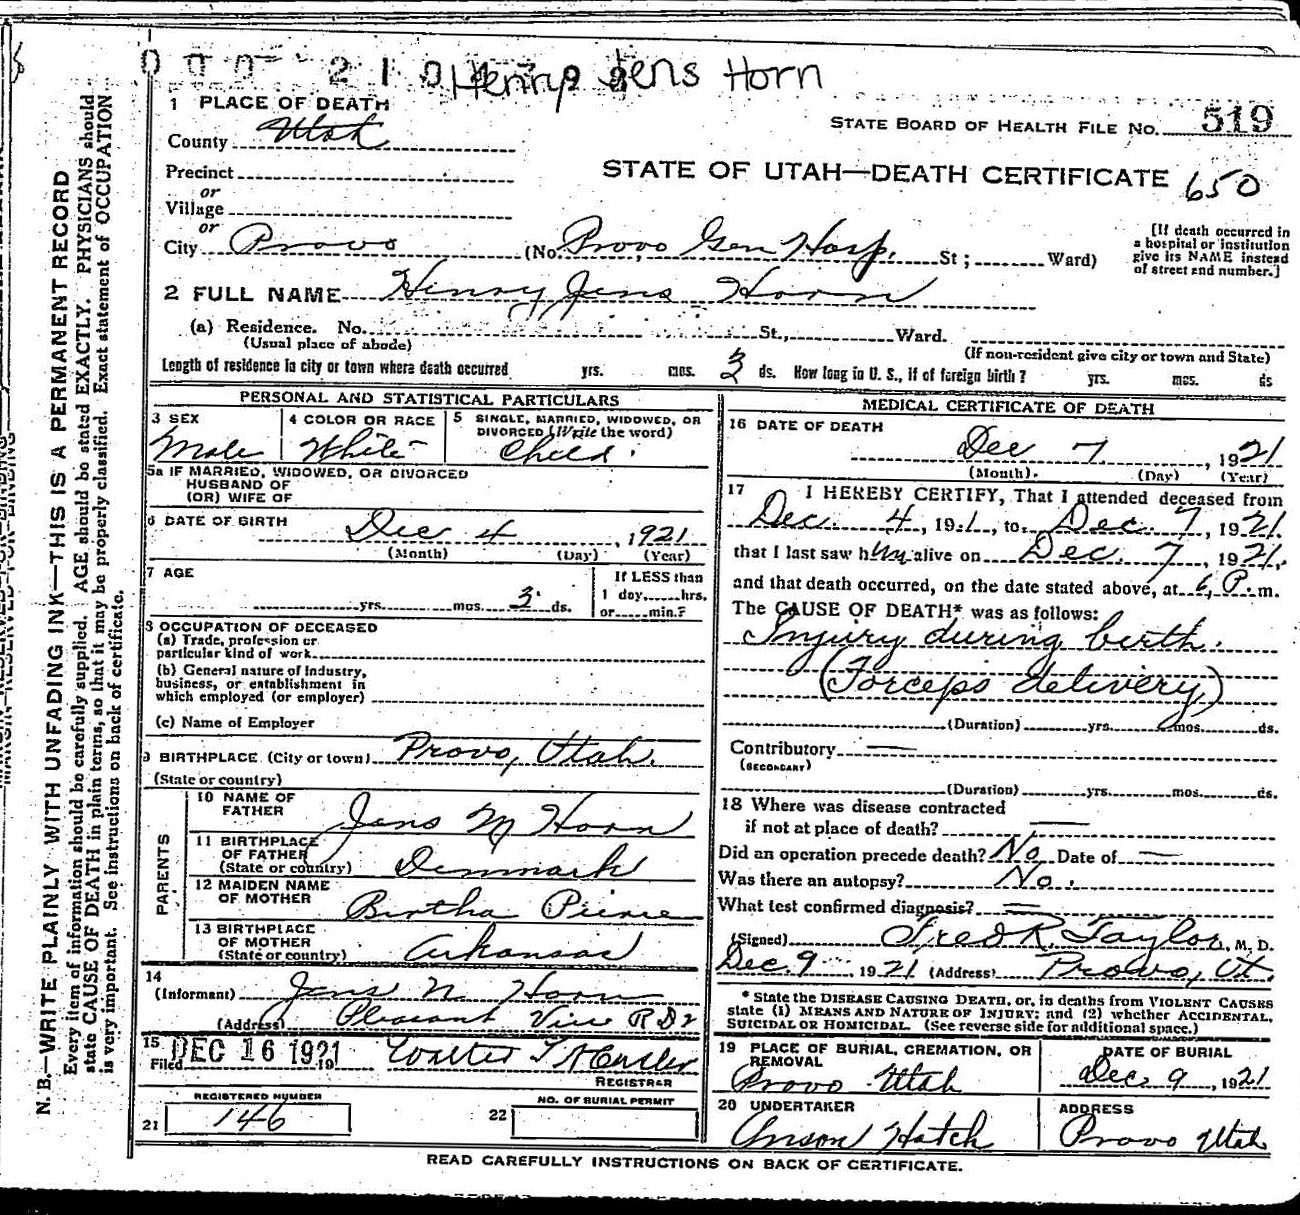 Henry Jens Horn
1 PLACE OF DEATH
STATE BOARD OF HEALTH FILE No. 519
County Utah
STATE OF UTAH—DEATH CERTIFICATE 650
Precinct
or
Village
or
City Provo (No. Provo Gen Hosp. St; Ward)
[If death occurred in
a hospital or institution
give its NAME instead
of street and number.]
2 FULL NAME Henry Jens Horn
(a) Residence. No. St., Ward.
(Usual place of abode) (If non-resident give city or town and State)
Length of residence in city or town where death occurred yrs. mos. 3 ds. How long in U. S., if of foreign birth? yrs. mos. ds
PERSONAL AND STATISTICAL PARTICULARS
3 SEX
Male
4 COLOR OR RACE
White
5 SINGLE, MARRIED, WIDOWED, OR
DIVORCED (Write the word)
Child
5a IF MARRIED, WIDOWED, OR DIVORCED
HUSBAND OF
(OR) WIFE OF
6 DATE OF BIRTH
Dec 4, 1921
(Month) (Day) (Year)
7 AGE
yrs. mos. 3 ds.
If LESS than
1 day, hrs.
or min.?
8 OCCUPATION OF DECEASED
(a) Trade, profession or
particular kind of work
(b) General nature of industry,
business, or establishment in
which employed (or employer)
(c) Name of Employer
9 BIRTHPLACE (City or town) Provo, Utah.
(State or country)
PARENTS
10 NAME OF
FATHER Jens M Horn
11 BIRTHPLACE
OF FATHER
(State or country) Denmark
12 MAIDEN NAME
OF MOTHER Bertha Pierce
13 BIRTHPLACE
OF MOTHER
(State or country) Arkansas
14
(Informant) Jens N Horn
(Address) Pleasant View R D 2
15 Filed DEC 16 1921 19 Walter T
REGISTRAR
REGISTERED NUMBER
21 146
NO. OF BURIAL PERMIT
22
MEDICAL CERTIFICATE OF DEATH
16 DATE OF DEATH
Dec 7, 1921
(Month). (Day) (Year)
17 I HEREBY CERTIFY, That I attended deceased from
Dec. 4, 191, to Dec. 7, 1921.
that I last saw him alive on Dec. 7, 1921.
and that death occurred, on the date stated above, at 6 P. m.
The CAUSE OF DEATH* was as follows:
Injury during birth.
(Forceps delivery)
(Duration) yrs. mos. ds.
Contributory —
(SECONDARY)
(Duration) yrs. mos. ds.
18 Where was disease contracted
if not at place of death? —
Did an operation precede death? No Date of —
Was there an autopsy? No.
What test confirmed diagnosis?
(Signed) Fred R. Taylor, M. D.
Dec. 9 1921 (Address) Provo, Ut.
* State the DISEASE CAUSING DEATH, or, in deaths from VIOLENT CAUSES
state (1) MEANS AND NATURE OF INJURY; and (2) whether ACCIDENTAL,
SUICIDAL OR HOMICIDAL. (See reverse side for additional space.)
19 PLACE OF BURIAL, CREMATION, OR
REMOVAL
Provo Utah
DATE OF BURIAL
Dec. 9, 1921
20 UNDERTAKER
Anson Hatch
ADDRESS
Provo Utah
READ CAREFULLY INSTRUCTIONS ON BACK OF CERTIFICATE.
N. B.—WRITE PLAINLY WITH UNFADING INK—THIS IS A PERMANENT RECORD
Every item of information should be carefully supplied. AGE should be stated EXACTLY. PHYSICIANS should
state CAUSE OF DEATH in plain terms, so that it may be properly classified. Exact statement of OCCUPATION
is very important. See instructions on back of certificate.